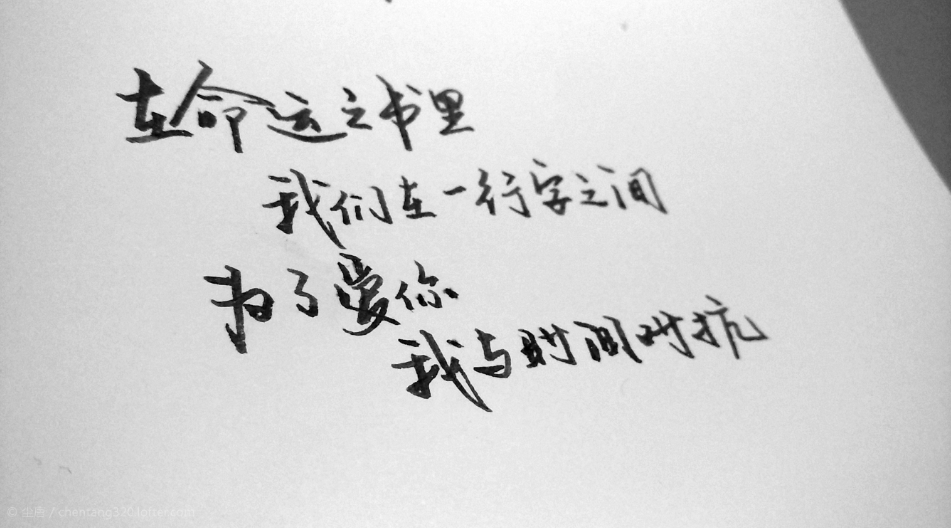 在命运之书里
我们在一行字之间
为了爱你
我与时间对抗